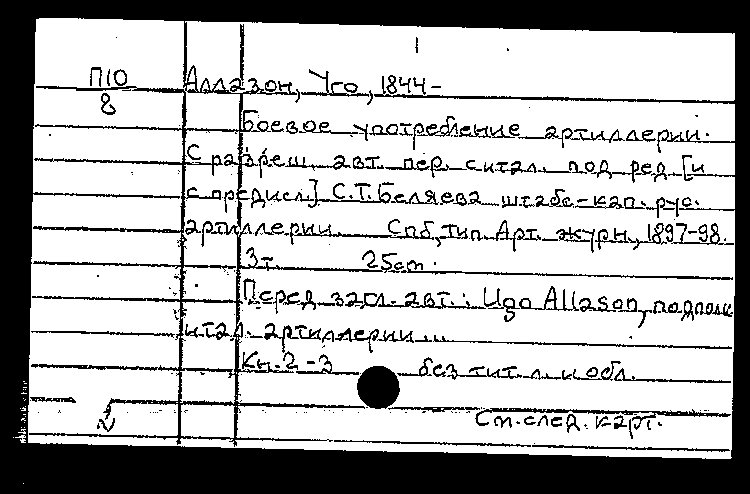 1
П10 Аллазон, Уго, 1844-
8
Боевое употребление артиллерии.
С разреш. авт. пер. с итал. под ред [и
с предисл.] С.Т. Беляева штабс-кап. рус.
артиллерии. Спб, тип. Арт. журн., 1897-98.
3т. 25см.
Перед загл. авт.: Ugo Allason, подполк
итал. артиллерии...
Кн. 2-3 без тит. л. и обл.
См. след. карт.